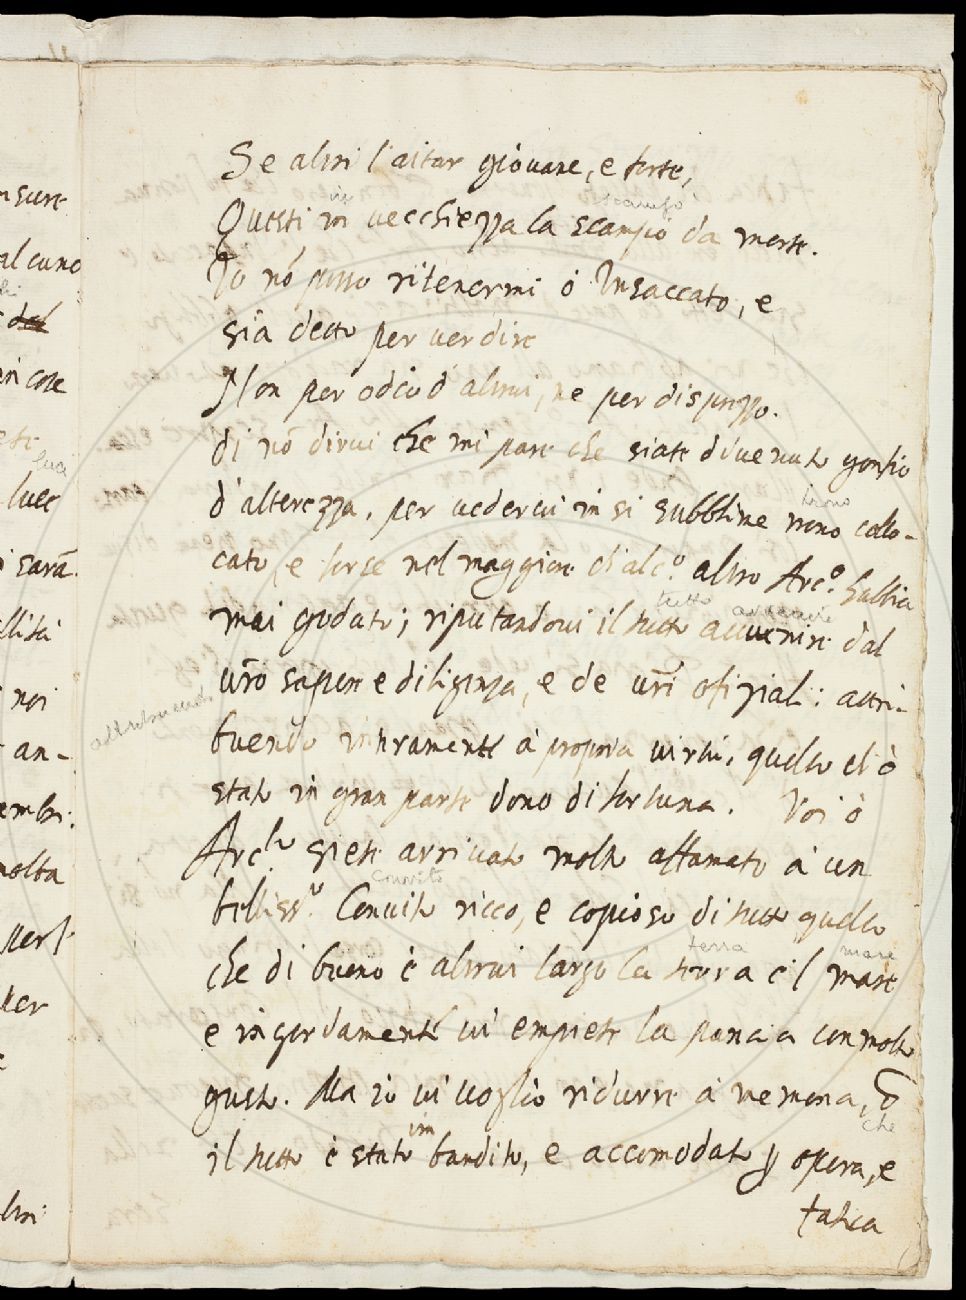 Se altri l'aitar giovane, e forte,
Questi in vecchiezza la scampò da morte.
scampò
Io nō posso ritenermi ò Insaccato, e
sia detto per ver dire
Non per odio d'altrui, ne per disprezzo.
di nō dirvi che mi pare che siate divenuto gonfio
d'alterezza, per vedervi in si subblime trono collo-
trono
cato, e forse nel maggiore ch'alc.º altro Arc.º habbia
mai goduto; riputandovi il tutto avvenire dal
tutto avvenire
vrō sapere e diligenza, e de vrī ofiziali: attri-
attribuendo
buendo intieramente à propria virtù, quello ch'è
stato in gran parte dono di fortuna. Voi ò
Arc.lo siete arrivato molto affamato à un
bellissº. Convito ricco, e copioso di tutto quello
convito
che di buono è altrui largo la terra e 'l mare
terra mare
e ingordamente vi empiete la pancia con molto
gusto. Ma io vi voglio ridurre à memoria,
che
il tutto è stato imbandito, e accomodato opera, e
fatica
nsure
alcuno
del
eri cose
sua
luce
sarā
noi
an-
embri:
molta
per
altri